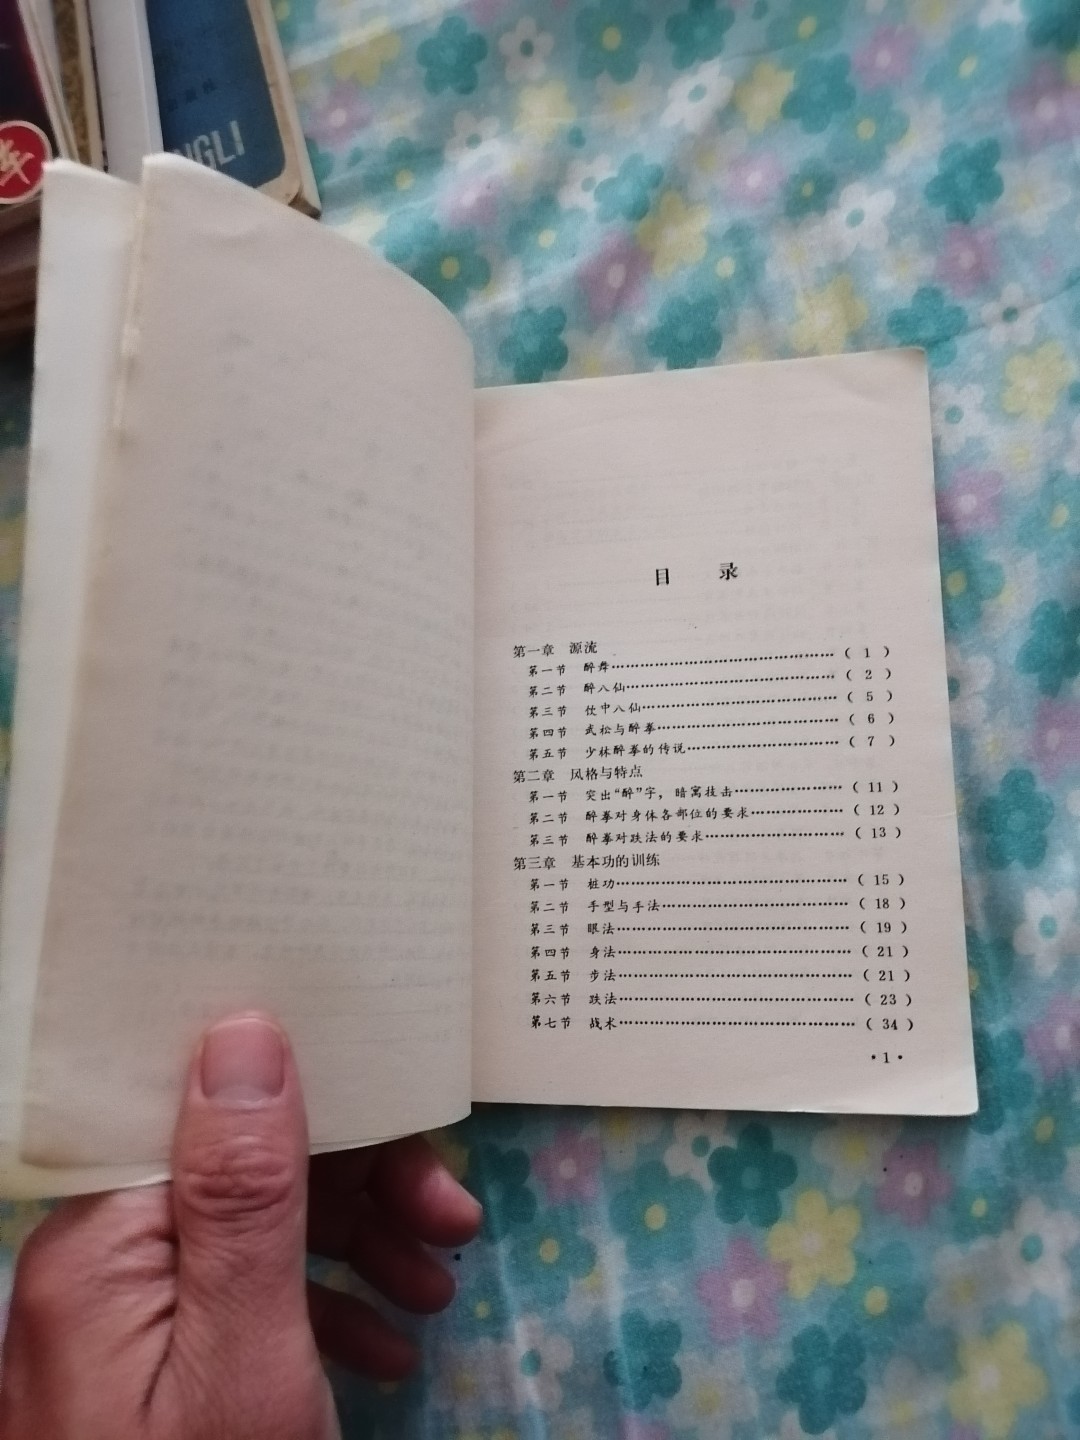 NGLI
目 录
第一章 源流
第一节 醉舞……………………………………( 1 )
第二节 醉八仙…………………………………( 2 )
第三节 饮中八仙………………………………( 5 )
第四节 武松与醉拳……………………………( 6 )
第五节 少林醉拳的传说………………………( 7 )
第二章 风格与特点
第一节 突出“醉”字，暗寓技击………………( 11 )
第二节 醉拳对身体各部位的要求……………( 12 )
第三节 醉拳对跌法的要求……………………( 13 )
第三章 基本功的训练
第一节 桩功……………………………………( 15 )
第二节 手型与手法……………………………( 18 )
第三节 眼法……………………………………( 19 )
第四节 身法……………………………………( 21 )
第五节 步法……………………………………( 21 )
第六节 跌法……………………………………( 23 )
第七节 战术……………………………………( 34 )
•1•